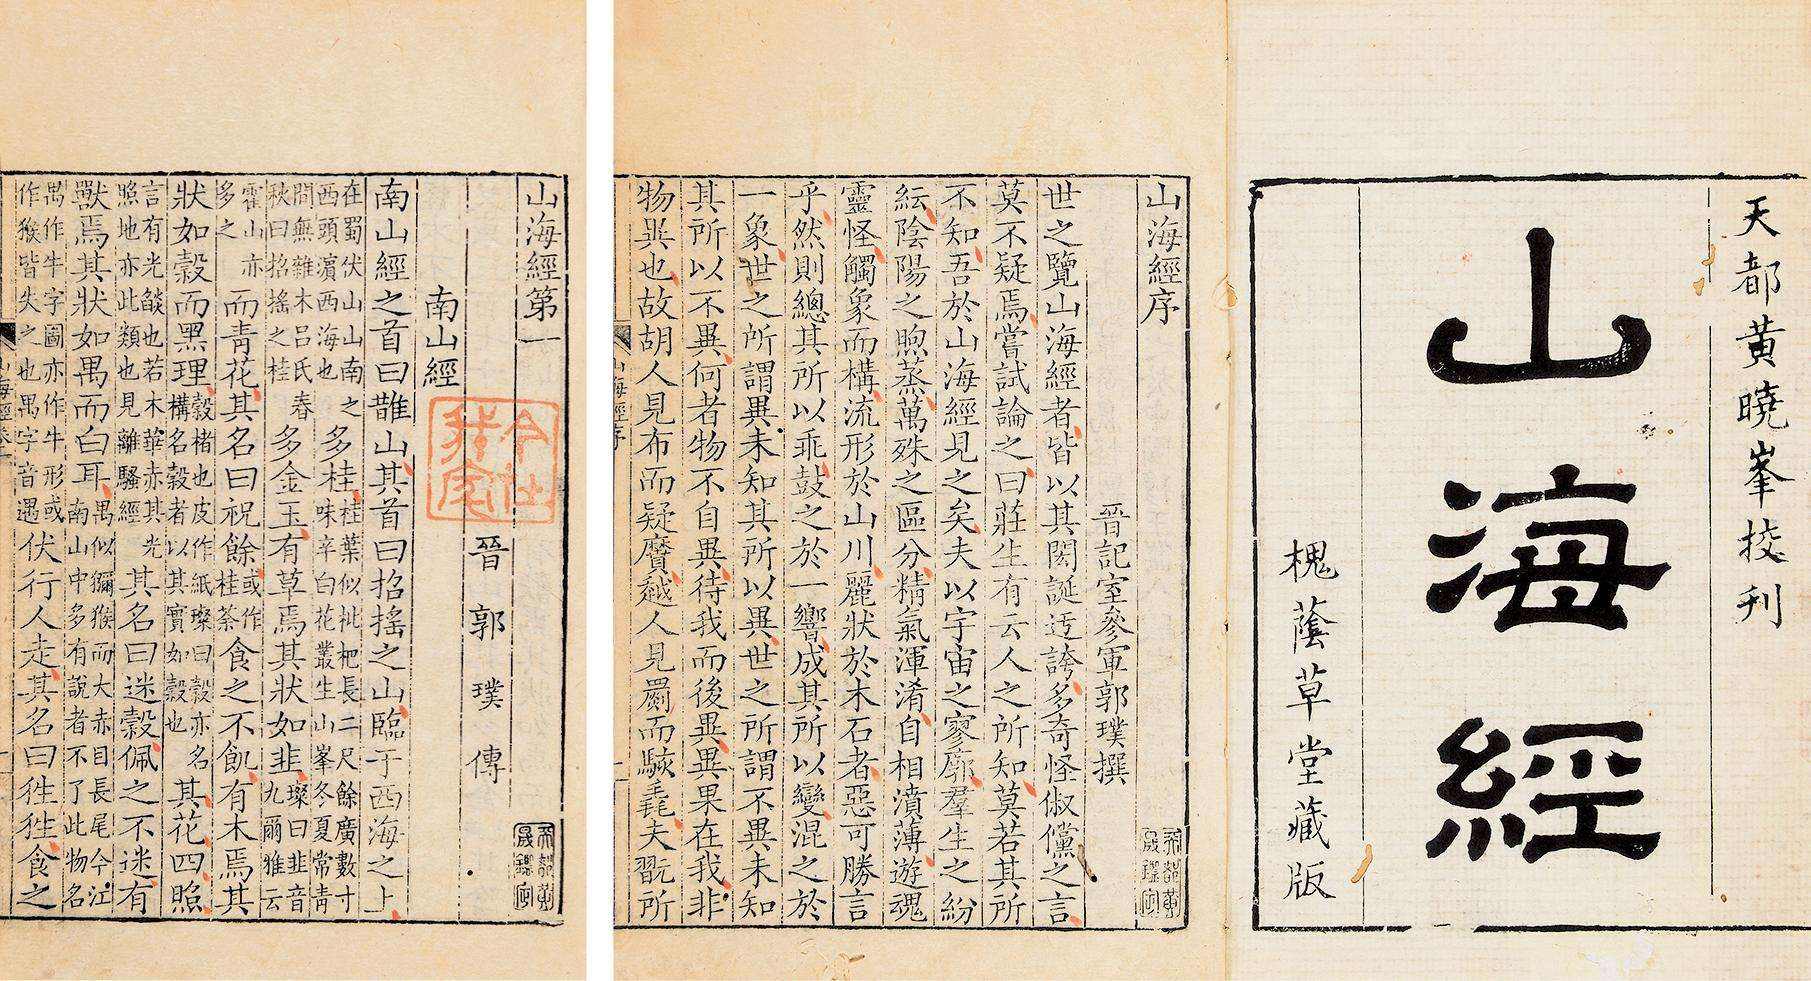 天都黃曉峯挍刋
山海經
槐蔭草堂藏版
山海經序
晉記室參軍郭璞撰
世之覽山海經者皆以其閎誕迂誇多奇怪俶儻之言
莫不疑焉嘗試論之曰莊生有云人之所知莫若其所
不知吾於山海經見之矣夫以宇宙之寥廓羣生之紛
紜陰陽之煦蒸萬殊之區分精氣渾淆自相濆薄遊魂
靈怪觸象而構流形於山川麗狀於木石者惡可勝言
乎然則總其所以乖鼓之於一響成其所以變混之於
一象世之所謂異未知其所以異世之所謂不異未知
其所以不異何者物不自異待我而後異異果在我非
物異也故胡人見布而疑黂越人見罽而駭毳夫翫所
山海經第一
晉郭璞傳
南山經
南山經之首曰䧿山其首曰招搖之山臨于西海之上
在蜀伏山山南之西頭濱西海也多桂桂葉似枇杷長二尺餘廣數寸味辛白花叢生山峯冬夏常青
間無雜木呂氏春秋曰招搖之桂多金玉有草焉其狀如韭璨曰韭音九爾雅云
霍山亦多之而青花其名曰祝餘或作桂荼食之不飢有木焉其
狀如穀而黑理榖楮也皮作紙璨曰榖亦名構名榖者以其實如榖也其花四照
言有光燄也若木華赤其光照地亦此類也見離騷經其名曰迷榖佩之不迷有
獸焉其狀如禺而白耳禺似獼猴而大赤目長尾今江南山中多有說者不了此物名
禺作牛字圖亦作牛形或作猴皆失之也禺字音遇伏行人走其名曰狌狌食之